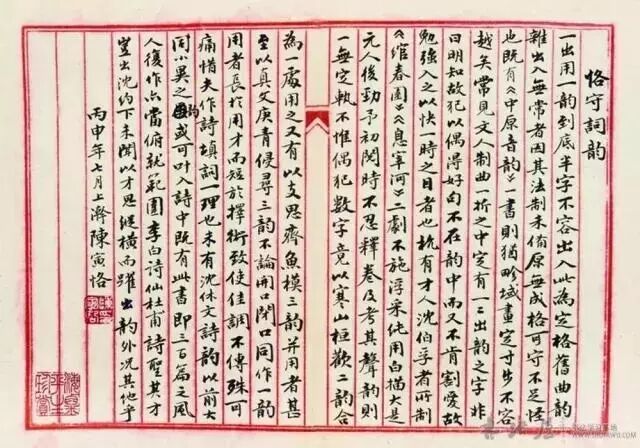 恪守詞韵
一出用一韵到底半字不容出入此為定格舊曲韵
雜出入無常者因其法制未備原無成格可守不足怪
也既有《中原音韵》一書則猶畛域畫定寸步不容
越矣常見文人制曲一折之中定有一二出韵之字非
曰明知故犯以偶得好句不在韵中而又不肯割愛故
勉強入之以快一時之目者也杭有才人沈孚者所制
《綰春園》《息宰河》二劇不施浮采純用白描大是
元人後勁予初閱時不忍釋卷及考其聲韵則
一無定軌不惟偶犯數字竟以寒山桓歡二韵合
為一處用之又有以支思齊魚模三韵并用者甚
至以真文庚青侵尋三韵不論開口閉口同作一韵
用者長於用才而短於擇術致使佳調不傳殊可
痛惜夫作詩填詞一理也未有沈休文詩韵以前大
同小異之韵或可叶入詩中既有此書即三百篇之風
人復作亦當俯就範圍李白詩仙杜甫詩聖其才
豈出沈約下未聞以才思縱橫而躍出韵外况其他乎
丙申年七月上澣陳寅恪